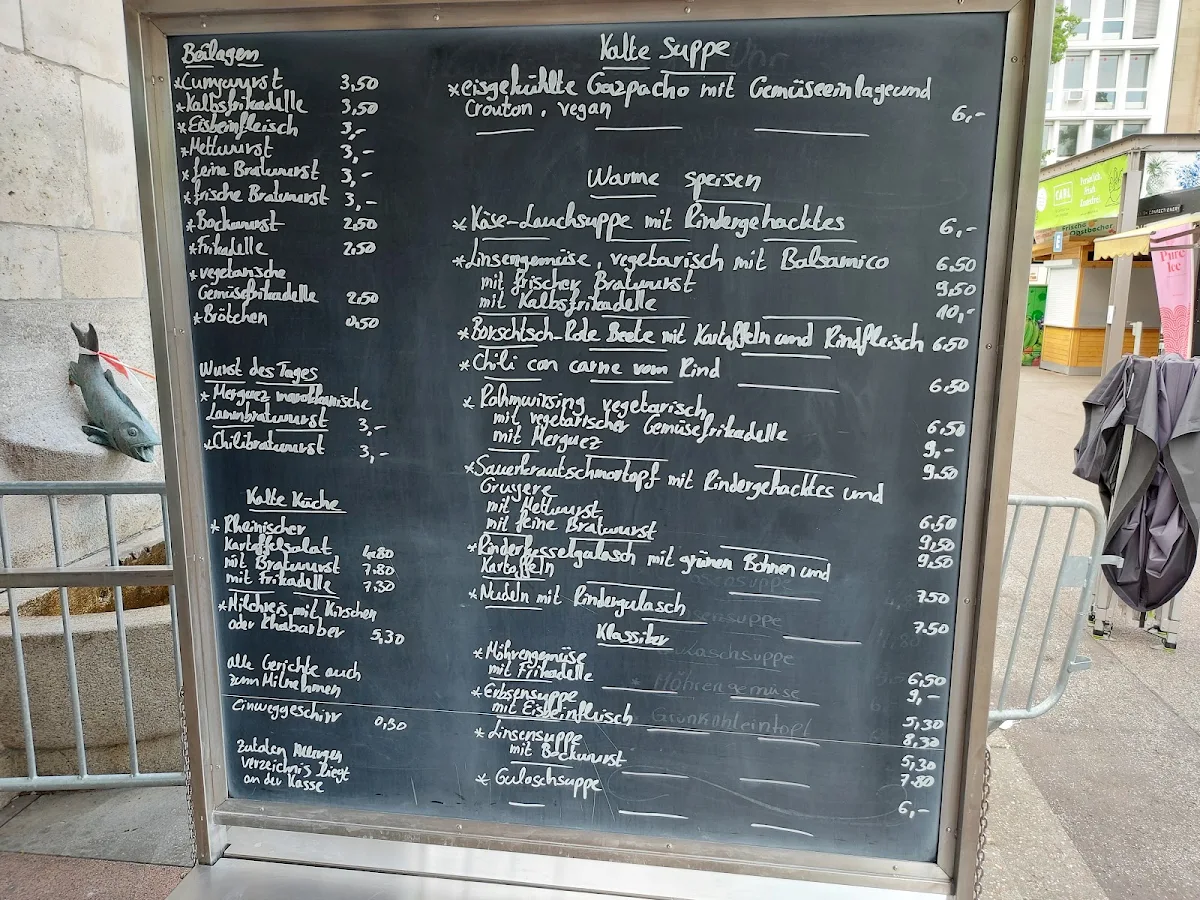 Beilagen
*Currywurst 3,50
*Kalbsfrikadelle 3,50
*Eisbeinfleisch 3,-
*Mettwurst 3,-
*feine Bratwurst 3,-
*frische Bratwurst 3,-
*Bockwurst 2,50
*Frikadelle 2,50
*vegetarische
Gemüsefrikadelle 2,50
*Brötchen 0,50
Wurst des Tages
*Merguez marokkanische
Lammbratwurst 3,-
*Chilibratwurst 3,-
Kalte Küche
*Rheinischer
Kartoffelsalat 4,80
mit Bratwurst 7,80
mit Frikadelle 7,30
*Milchreis mit Kirschen
oder Rhabarber 5,30
alle Gerichte auch
zum Mitnehmen
Einweggeschirr 0,30
Zutaten Allergen
verzeichnis liegt
an der Kasse
Kalte Suppe
*eisgekühlte Gazpacho mit Gemüseeinlage und
Crouton, vegan 6,-
Warme speisen
*Käse-Lauchsuppe mit Rindergehacktes 6,-
*Linsengemüse, vegetarisch mit Balsamico 6,50
mit frischer Bratwurst 9,50
mit Kalbsfrikadelle 10,-
*Borschtsch-Rote Beete mit Kartoffeln und Rindfleisch 6,50
*Chili con carne vom Rind 6,50
*Rahmwirsing vegetarisch 6,50
mit vegetarischer Gemüsefrikadelle 9,-
mit Merguez 9,50
*Sauerkrautschmortopf mit Rindergehacktes und
Gruyere 6,50
mit Mettwurst 9,50
mit feine Bratwurst 9,50
*Rinderkesselgulasch mit grünen Bohnen und
Kartoffeln 7,50
*Nudeln mit Rindergulasch 7,50
Klassiker
*Möhrengemüse 6,50
mit Frikadelle 9,-
*Erbsensuppe 5,30
mit Eisbeinfleisch 8,30
*Linsensuppe 5,30
mit Bockwurst 7,80
*Gulaschsuppe 6,-
Möhrengemüse
Grünkohleintopf
Frische
Obstbecher
Pure
Ice